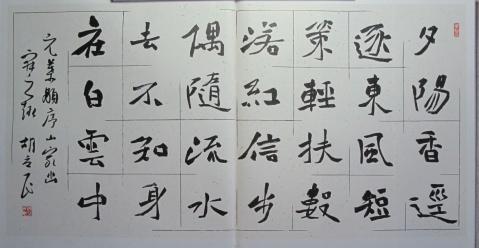 夕陽香逕
逐東風短
策輕扶數
落紅信步
偶隨流水
去不知身
在白雲中
元葉顒序山家幽
寂之趣 胡立民